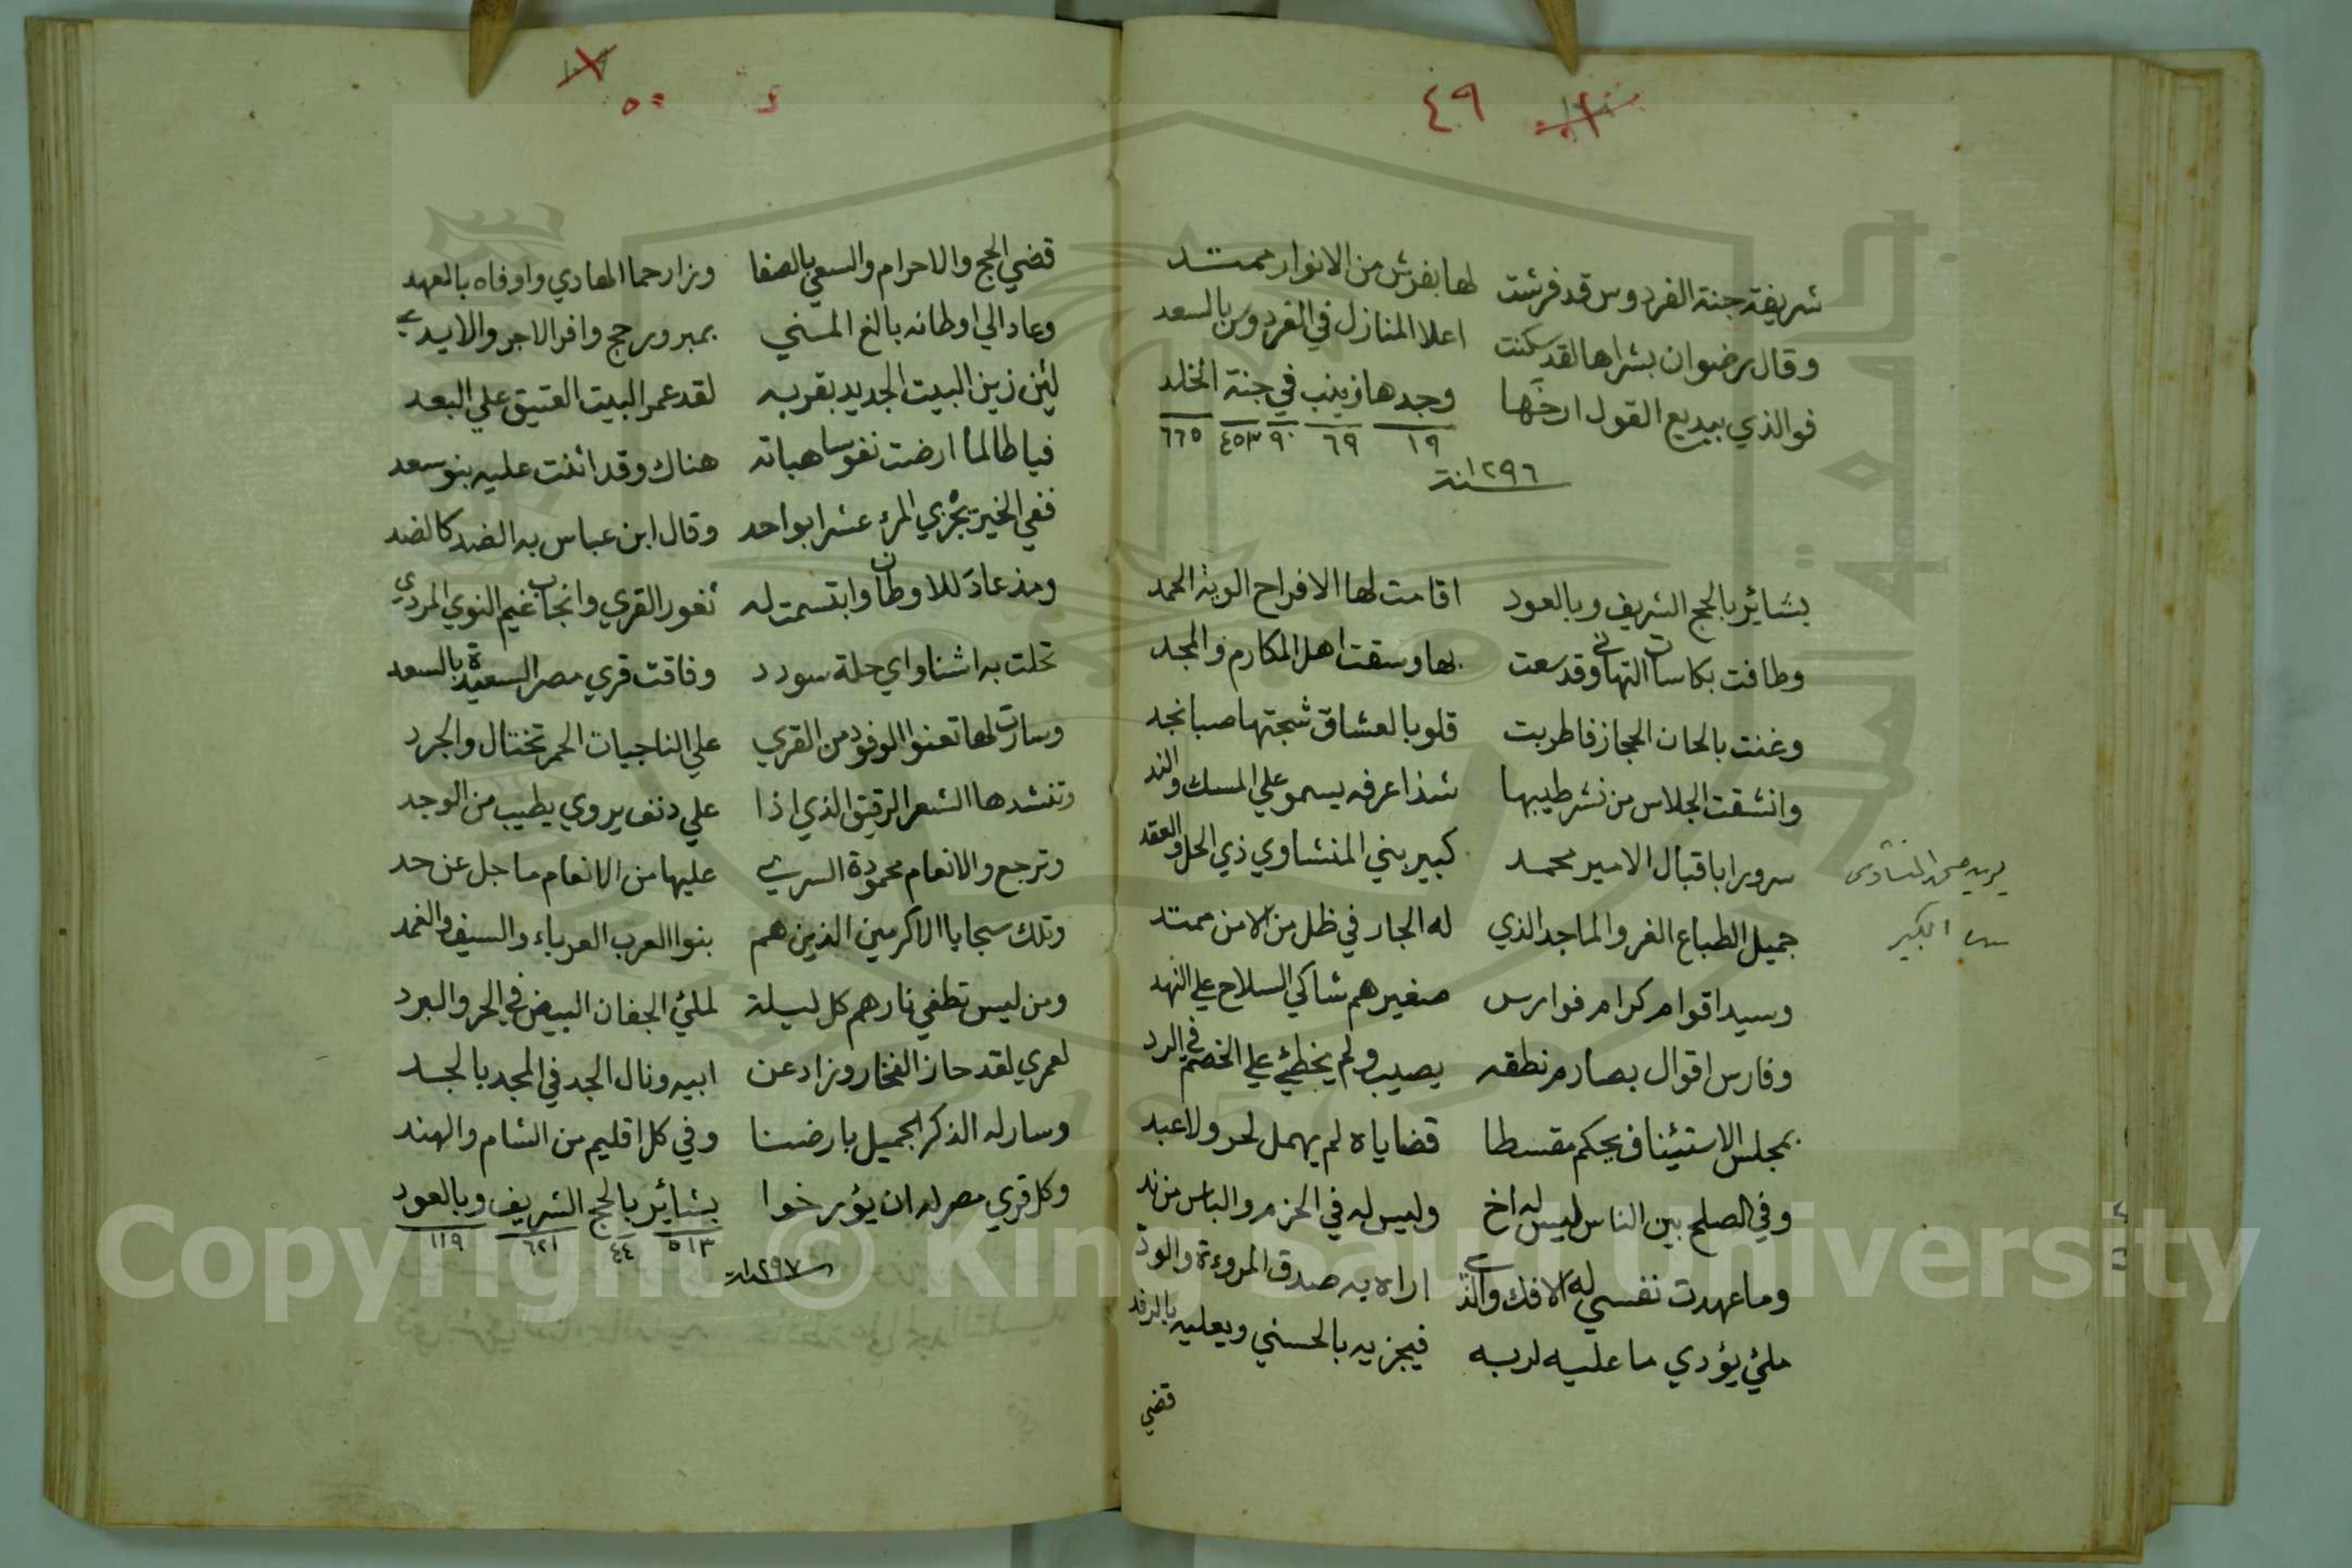 ٤٩
شريفة جنة الفردوس قد فرشت لها بفرش من الانوار ممتد
وقال رضوان بشراها لقد سكنت اعلا المنازل في الفردوس بالسعد
فوالذي ببديع القول ارخها وجدها زينب في جنة الخلد
١٩ ٦٩ ٩٠ ٤٥٣ ٦٦٥
سنة ١٢٩٦
بشائر بالحج الشريف وبالعود اقامت لها الافراح الوية الحمد
وطافت بكاسات التهاني وقد سعت بها وسقت اهل المكارم والمجد
وغنت بالحان الحجاز فاطربت قلوبا لعشاق شجتها صبا نجد
وانشقت الجلاس من نشر طيبها شذا عرفه يسمو علي المسك والند
سرورا باقبال الامير محمد كبير بني المنشاوي ذي الحل والعقد
جميل الطباع الغر والماجد الذي له الجار في ظل من الامن ممتد
وسيد اقوام كرام فوارس صغيرهم شاكي السلاح علي النهد
وفارس اقوال بصارم نطقه يصيب ولم يخطئ علي الخصم في الرد
بمجلس الاستئناف يحكم مقسطا قضاياه لم يهمل لحر ولا عبد
وفي الصلح بين الناس ليس له اخ وليس له في الحزم والباس من ند
وما عهدت نفسي له الافك والذي اراه به صدق المروءة والود
ملئ يؤدي ما عليه لربه فيجزيه بالحسني ويعليه بالرفد
قضي
المنشاوى
الكبير
٥٠
قضي الحج والاحرام والسعي بالصفا وزار حما الهادي واوفاه بالعهد
وعاد الي اوطانه بالغ المني بمبرور حج وافر الاجر والايدي
لئن زين البيت الجديد بقربه لقد عمر البيت العتيق علي البعد
فيا طالما ارضت نفوسا هباته هناك وقد اثنت عليه بنو سعد
ففي الخير يجزي المرء عشرا بواحد وقال ابن عباس به الضد كالضد
ومذ عاد للاوطان وابتسمت له ثغور القري وانجاب غيم النوي المردي
تحلت به اشناواي حلة سودد وفاقت قري مصر السعيدة بالسعد
وسارت لها تعنوا الوفود من القري علي الناجيات الحمر تختال والجرد
وتنشدها الشعر الرقيق الذي اذا علي دنف يروي يطيب من الوجد
وترجع والانعام محمودة السري عليها من الانعام ما جل عن حد
وتلك سجايا الاكرمين الذين هم بنوا العرب العرباء والسيف والغمد
ومن ليس تطفي نارهم كل ليلة لملئ الجفان البيض في الحر والبرد
لعمري لقد حاز الفخار وزاد عن ابيه ونال الجد في المجد بالجد
وسار له الذكر الجميل بارضنا وفي كل اقليم من الشام والهند
وكل قري مصر له ان يؤرخوا بشائر بالحج الشريف وبالعود
٥١٣ ٤٤ ٦٢١ ١١٩
سنة ١٢٩٧
Copyright © King Saud University